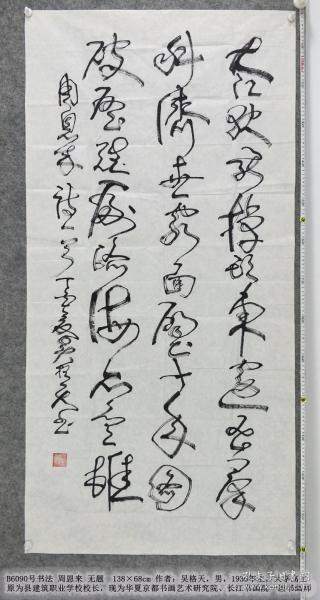 大江歌罢掉头东邃密群
科济世穷面壁十年图
破壁难酬蹈海亦英雄
周恩来诗一首丁亥夏吴格天书
B6090号书法 周恩来 无题 138×68cm 作者：吴格天，男，1956年生，大学
原为县建筑职业学校校长，现为华夏京都书画艺术研究院、长江书画院一级书画师